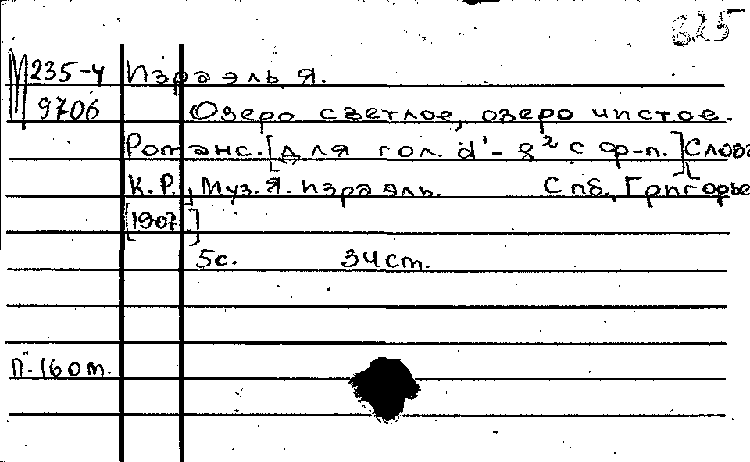 825
М 235-4 Израэль, Я.
9706 Озеро светлое, озеро чистое.
Романс. [Для гол. d¹-g² с ф-п.] Слова
К. Р., Муз. Я. Израэль. Спб, Григорье
[1907]
5с. 34 cm.
П-160 т.